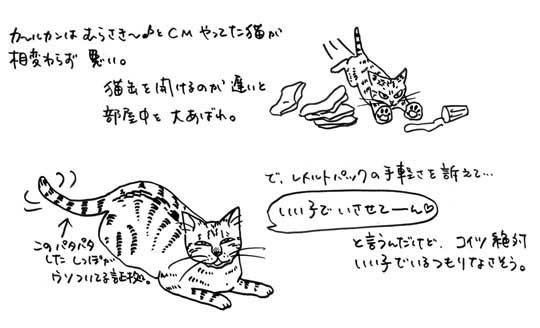 カールカンは むらさき〜♪と CM やってた猫が
相変わらず 悪い。
猫缶を開けるのが 遅いと
部屋中を 大あばれ。
で、レトルトパックの手軽さを訴えて…
いい子でいさせてーん♡
と言うんだけど、コイツ絶対
いい子でいるつもりなさそう。
このパタパタ
したしっぽが
ウソついてる証拠。